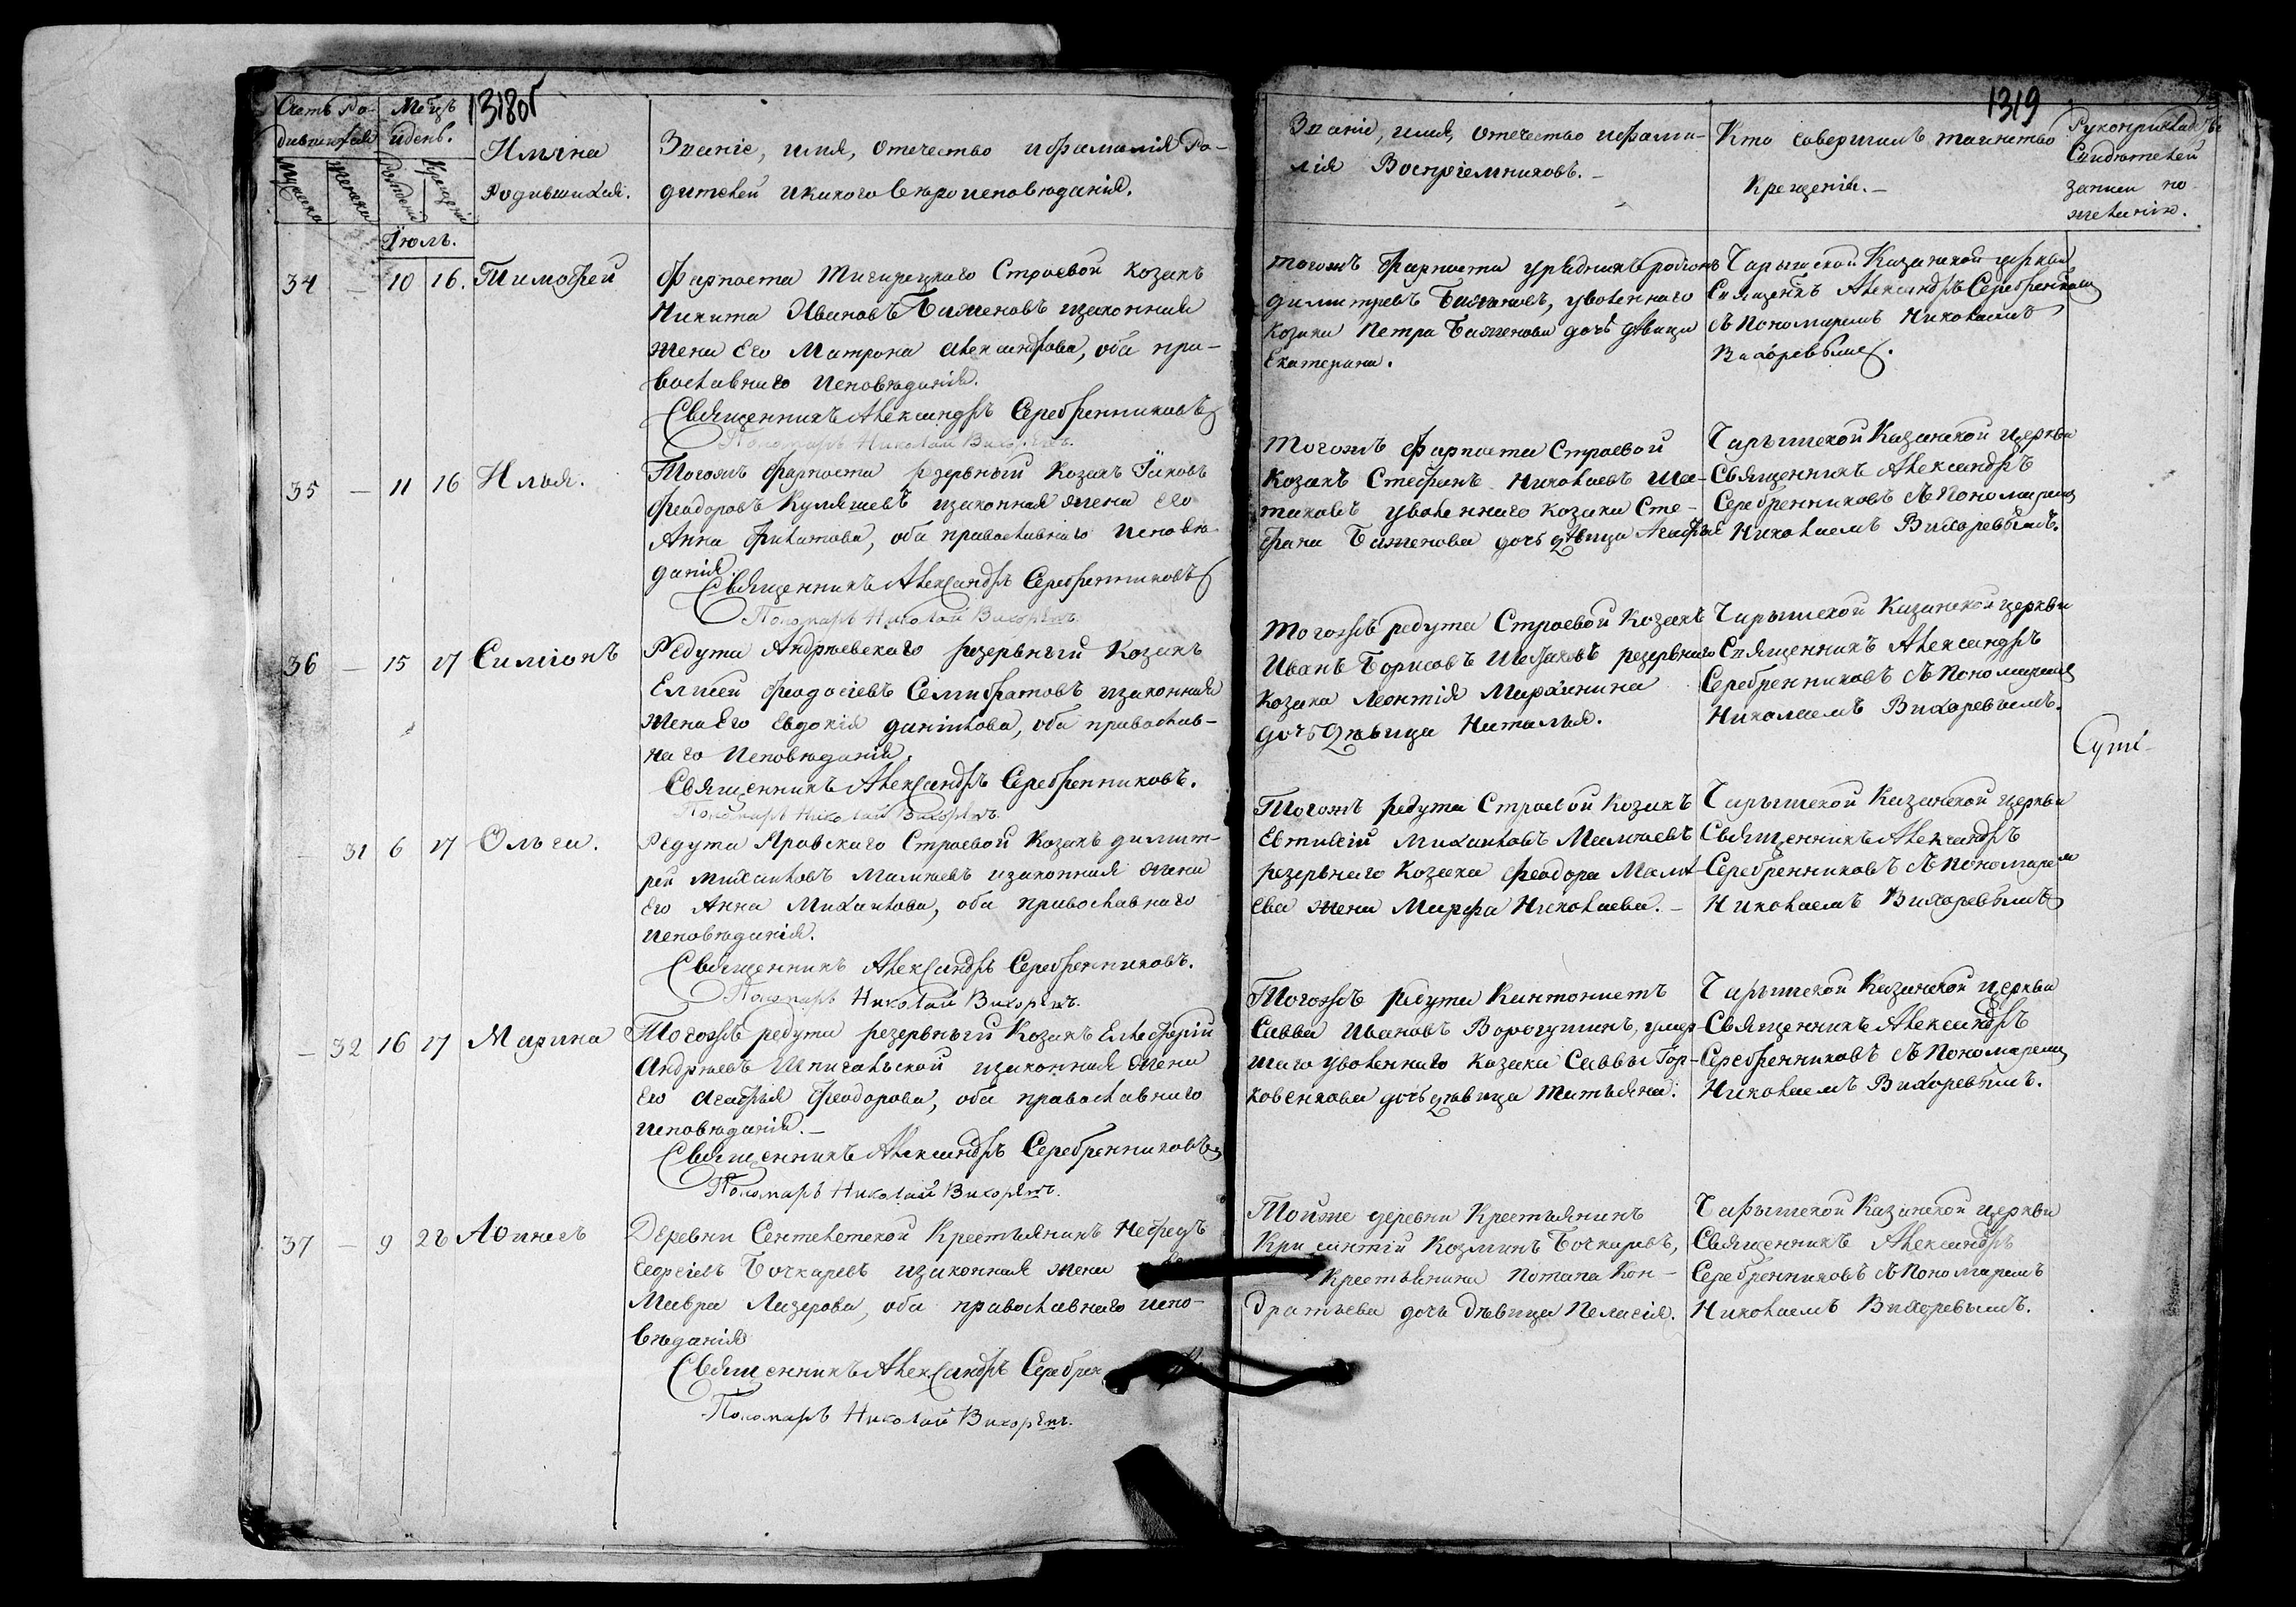 1318об
1319
Счетъ Ро-
дившихся
Мѣцъ
и день.
Мужеска
Женска
Рожденія
Крещенія
Имяна
Родившихся.
Званіе, имя, Отечество и фамилія Ро-
дителей и какого Вѣроисповѣданія.
Званіе, имя, Отечество и фами-
лія Воспріемниковъ. —
Кто совершилъ таинство
Крещенія. —
Рукоприкладство
Свидѣтелей
записи по
желанію.
Іюль.
34 — 10 16. Тимофей
Фарпоста Тигирецкаго Строевой Козакъ
Никита Ивановъ Баженовъ изаконная
жена Его Матрона Александрова, оба пра-
вославнаго Исповѣданія.
Священникъ Александръ Серебренниковъ
Пономарь Николай Вихоревъ.
тогожъ Фарпоста урядникъ родіонъ
димитревъ Баженовъ, уволеннаго
козака Петра Баженова дочь дѣвица
Екатерина.
Чарышской Казанской церкви
Священкъ Александръ Серебренниковъ
съ Пономаремъ Николаемъ
Вихоревымъ.
35 — 11 16 Илья.
Тогожъ Фарпоста резервный Козакъ Іаковъ
Феодоровъ Куляшевъ изаконная жена Его
Анна Филатова, оба православнаго Исповѣ-
данія.
Священникъ Александръ Серебренниковъ
Пономарь Николай Вихоревъ.
Тогожъ Фарпоста Строевой
Козакъ Стефанъ Николаевъ Ше-
стаковъ уволеннаго козака Сте-
фана Баженова дочь дѣвица Агафья
Чарышской Казанской церкви
Священникъ Александръ
Серебренниковъ съ Пономаремъ
Николаемъ Вихоревымъ.
36 — 15 17 Симіонъ
Редута Андреевскаго резервный Козакъ
Елисей Феодосіевъ Семибратовъ изаконная
жена Его Евдокія данилова, оба православ-
наго Исповѣданія.
Священникъ Александръ Серебренниковъ.
Пономарь Николай Вихоревъ.
Тогожъ редута Строевой Козакъ
Иванъ Борисовъ резервнаго
Козака Леонтія
дочь дѣвица Наталья.
Чарышской Казанской церкви
Священникъ Александръ
Серебренниковъ съ Пономаремъ
Николаемъ Вихоревымъ.
— 31 6 17 Ольга.
Редута Яровскаго Строевой Козакъ димит-
рей Михаиловъ Мамаевъ изаконная жена
Его Анна Михаилова, оба православнаго
исповѣданія.
Священникъ Александръ Серебренниковъ.
Пономарь Николай Вихоревъ.
Тогожъ редута Строевой Козакъ
Евтихій Михаиловъ Мамаевъ
резервнаго Козака Феодора Мама-
ева жена Марфа Николаева. —
Чарышской Казанской церкви
Священникъ Александръ
Серебренниковъ съ Пономаремъ
Николаемъ Вихоревымъ
— 32 16 17 Марина
Тогожъ редута резервный Козакъ Елеферій
Андреевъ Шпигальской изаконная жена
Его Агафья Феодорова, оба православнаго
исповѣданія. —
Священникъ Александръ Серебренниковъ
Пономарь Николай Вихоревъ.
Тогожъ редута Кантонистъ
Савва Ивановъ Ворогушинъ, умер-
шаго уволеннаго Козака Саввы Гор-
ковенкова дочь дѣвица Татьяна.
Чарышской Казанской церкви
Священникъ Александръ
Серебренниковъ съ Пономаремъ
Николаемъ Вихоревымъ.
37 — 9 22
Деревни Сентелекской Крестьянинъ Нефедъ
Георгіевъ Бочкаревъ изаконная жена
Мавра Лазерова, оба православнаго испо-
вѣданія
Священникъ Александръ Серебрен
Пономарь Николай Вихоревъ.
Тойже деревни Крестьянинъ
Крисантій Козминъ Бочкаревъ,
Крестьянина Потапа Кон-
дратьева дочь дѣвица Пелагія.
Чарышской Казанской церкви
Священникъ Александръ
Серебренниковъ съ Пономаремъ
Николаемъ Вихоревымъ.